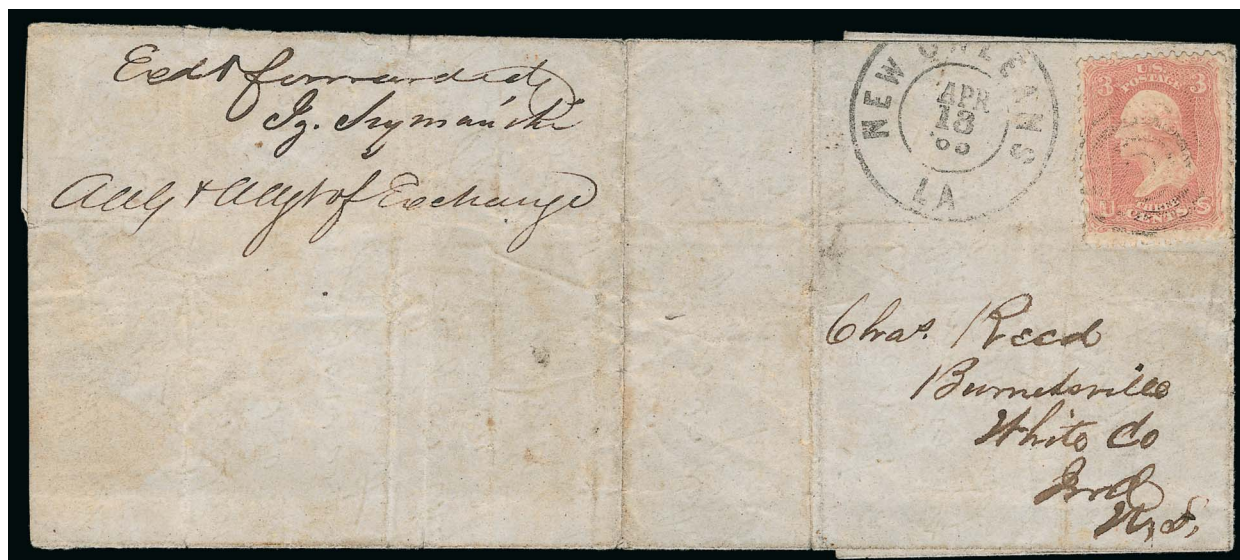 Exd & forwarded
Ig. Szymański
Agt of Exchange
NEW ORLEANS
APR
18
LA
3 U.S. 3
POSTAGE
U CENTS S
Chas. Reed
Burnetsville
White Co
Ind
U.S.